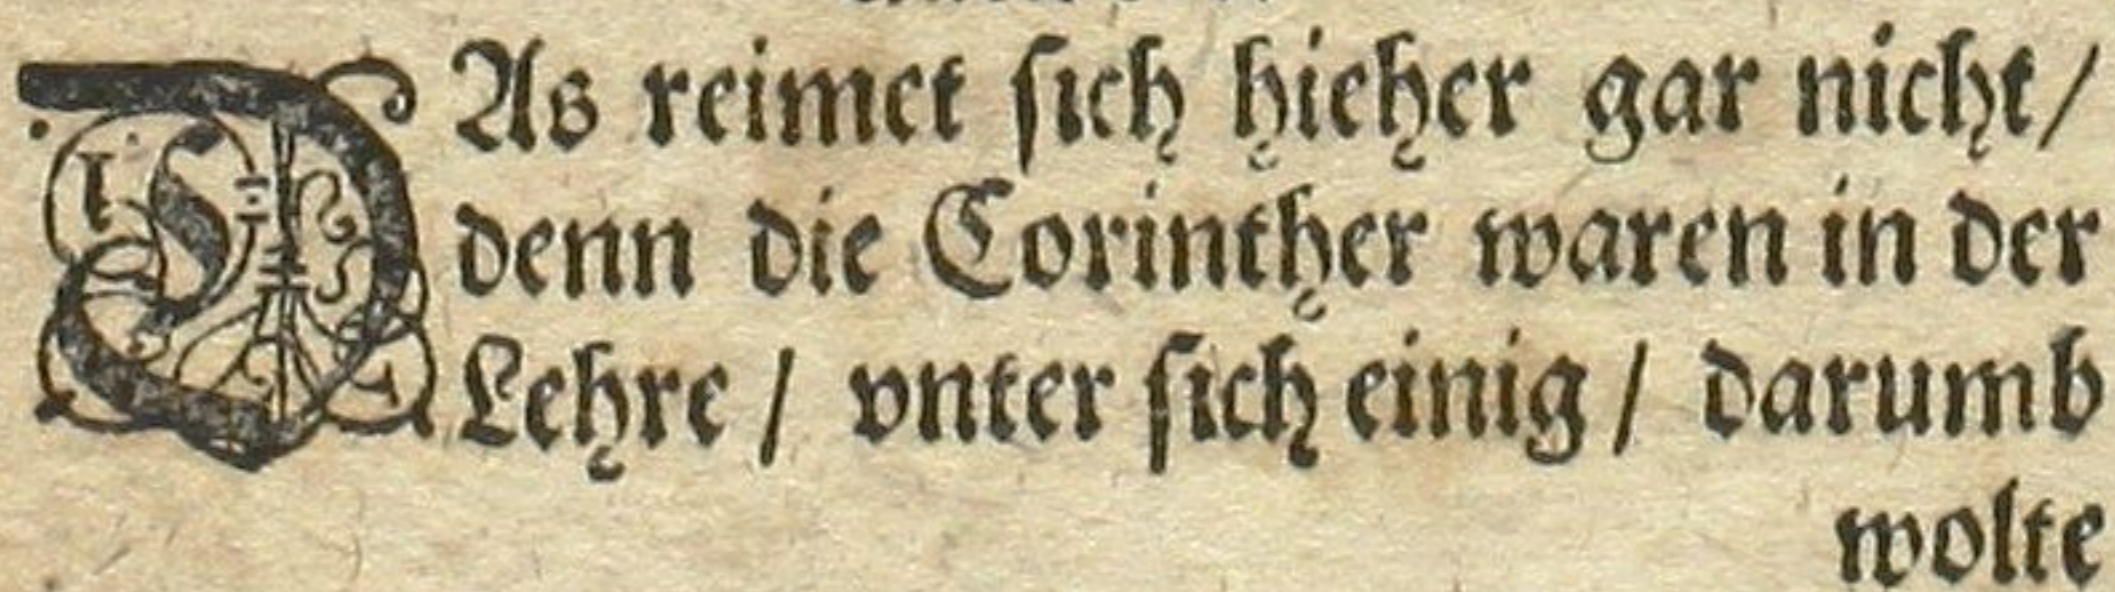 DAs reimet ſich hieher gar nicht/
denn die Corinther waren in der
Lehre/ vnter ſich einig/ darumb
wolte